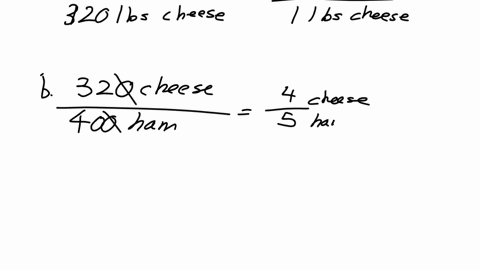 320 lbs cheese
1 lbs cheese
b. 320 cheese
400 ham
= 4 cheese
5 ha